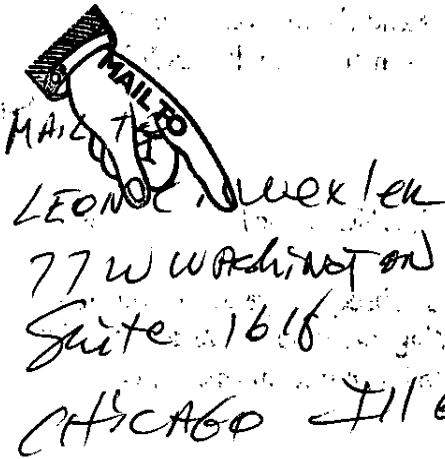 MAIL TO
MAIL TO
LEON C. Wexler
77 W WAShiNGTON
Suite 1618
CHiCAGO Ill